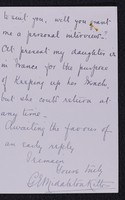 to send you, will you grant
me a personal interview?
At present my daughter is
in France for the purpose
of keeping up her French,
but she could return at
any time.
Awaiting the favour of
an early reply,
I remain
Yours truly
Middleton